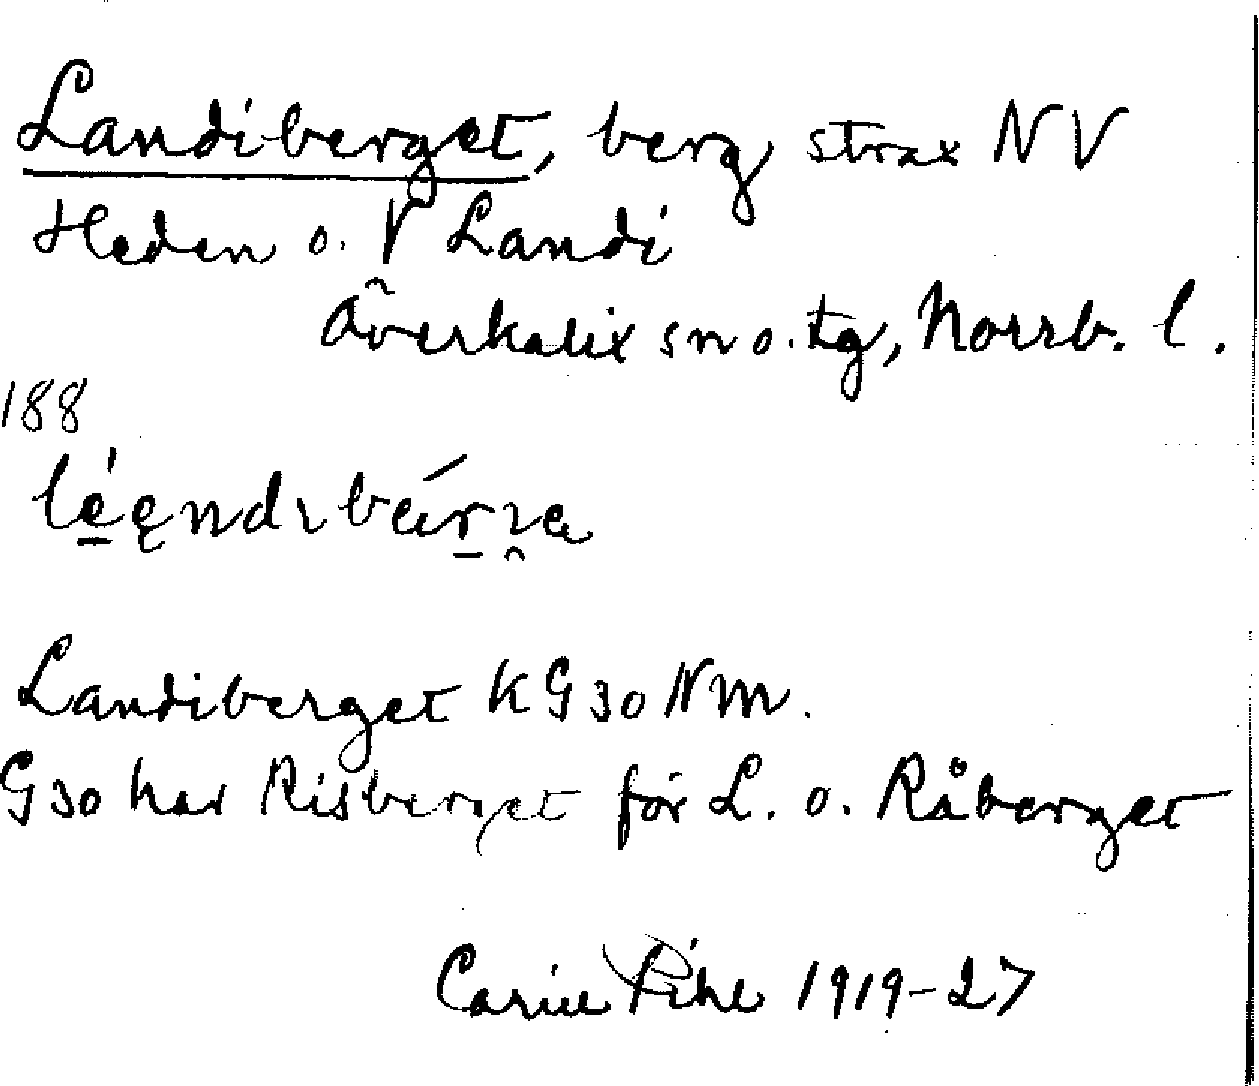 Landiberget, berg strax NV
Heden o. V Landi
Överkalix sn o. tg, Norrb. l.
188
Landiberget KG30NM.
G30 har Risberget för L. o. Råberget
Carin Pihl 1919-27